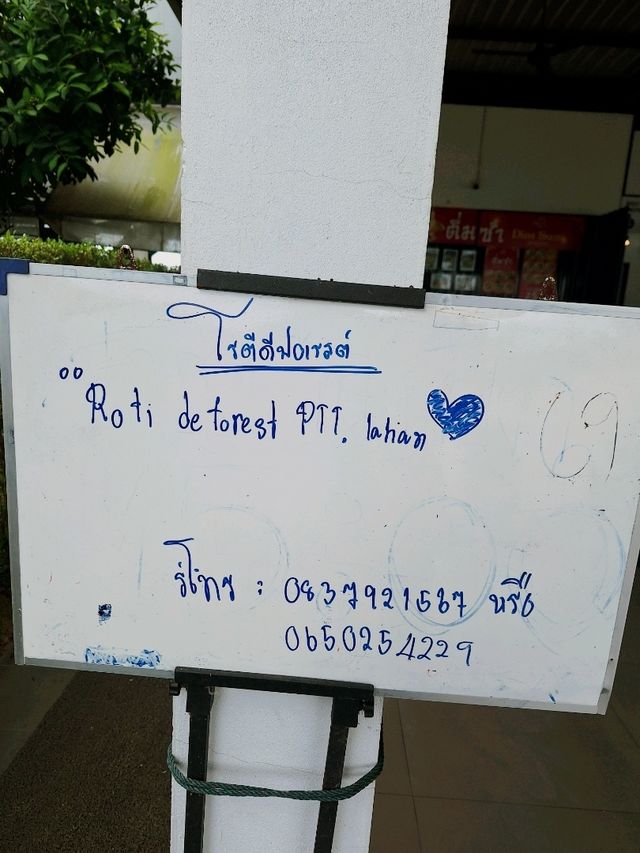 ติ่มซำ Dim Sum
โรตีดีฟอเรสต์
Roti deforest PTT. lahan
โทร : 0837921567 หรือ
0650254229